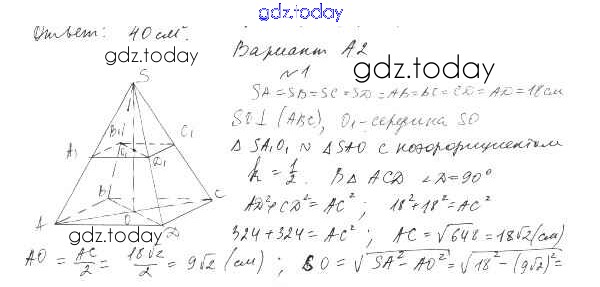 gdz.today
Ответ: 40 см².
gdz.today
Вариант А2
N1
gdz.today
SA = SB = SC = SD = AB = BC = CD = AD = 18 см
SO ⊥ (ABC), O₁ - середина SO
△ SA₁O₁ ∾ △ SAO с коэффициентом
k = 1/2. В △ ACD ∠D = 90°
AD² + CD² = AC²; 18² + 18² = AC²
324 + 324 = AC²; AC = √648 = 18√2 (см)
AO = AC/2 = 18√2/2 = 9√2 (см); SO = √SA² - AO² = √18² - (9√2)² =
S
B₁
C₁
A₁
O₁
D₁
B
C
A
O
D
gdz.today